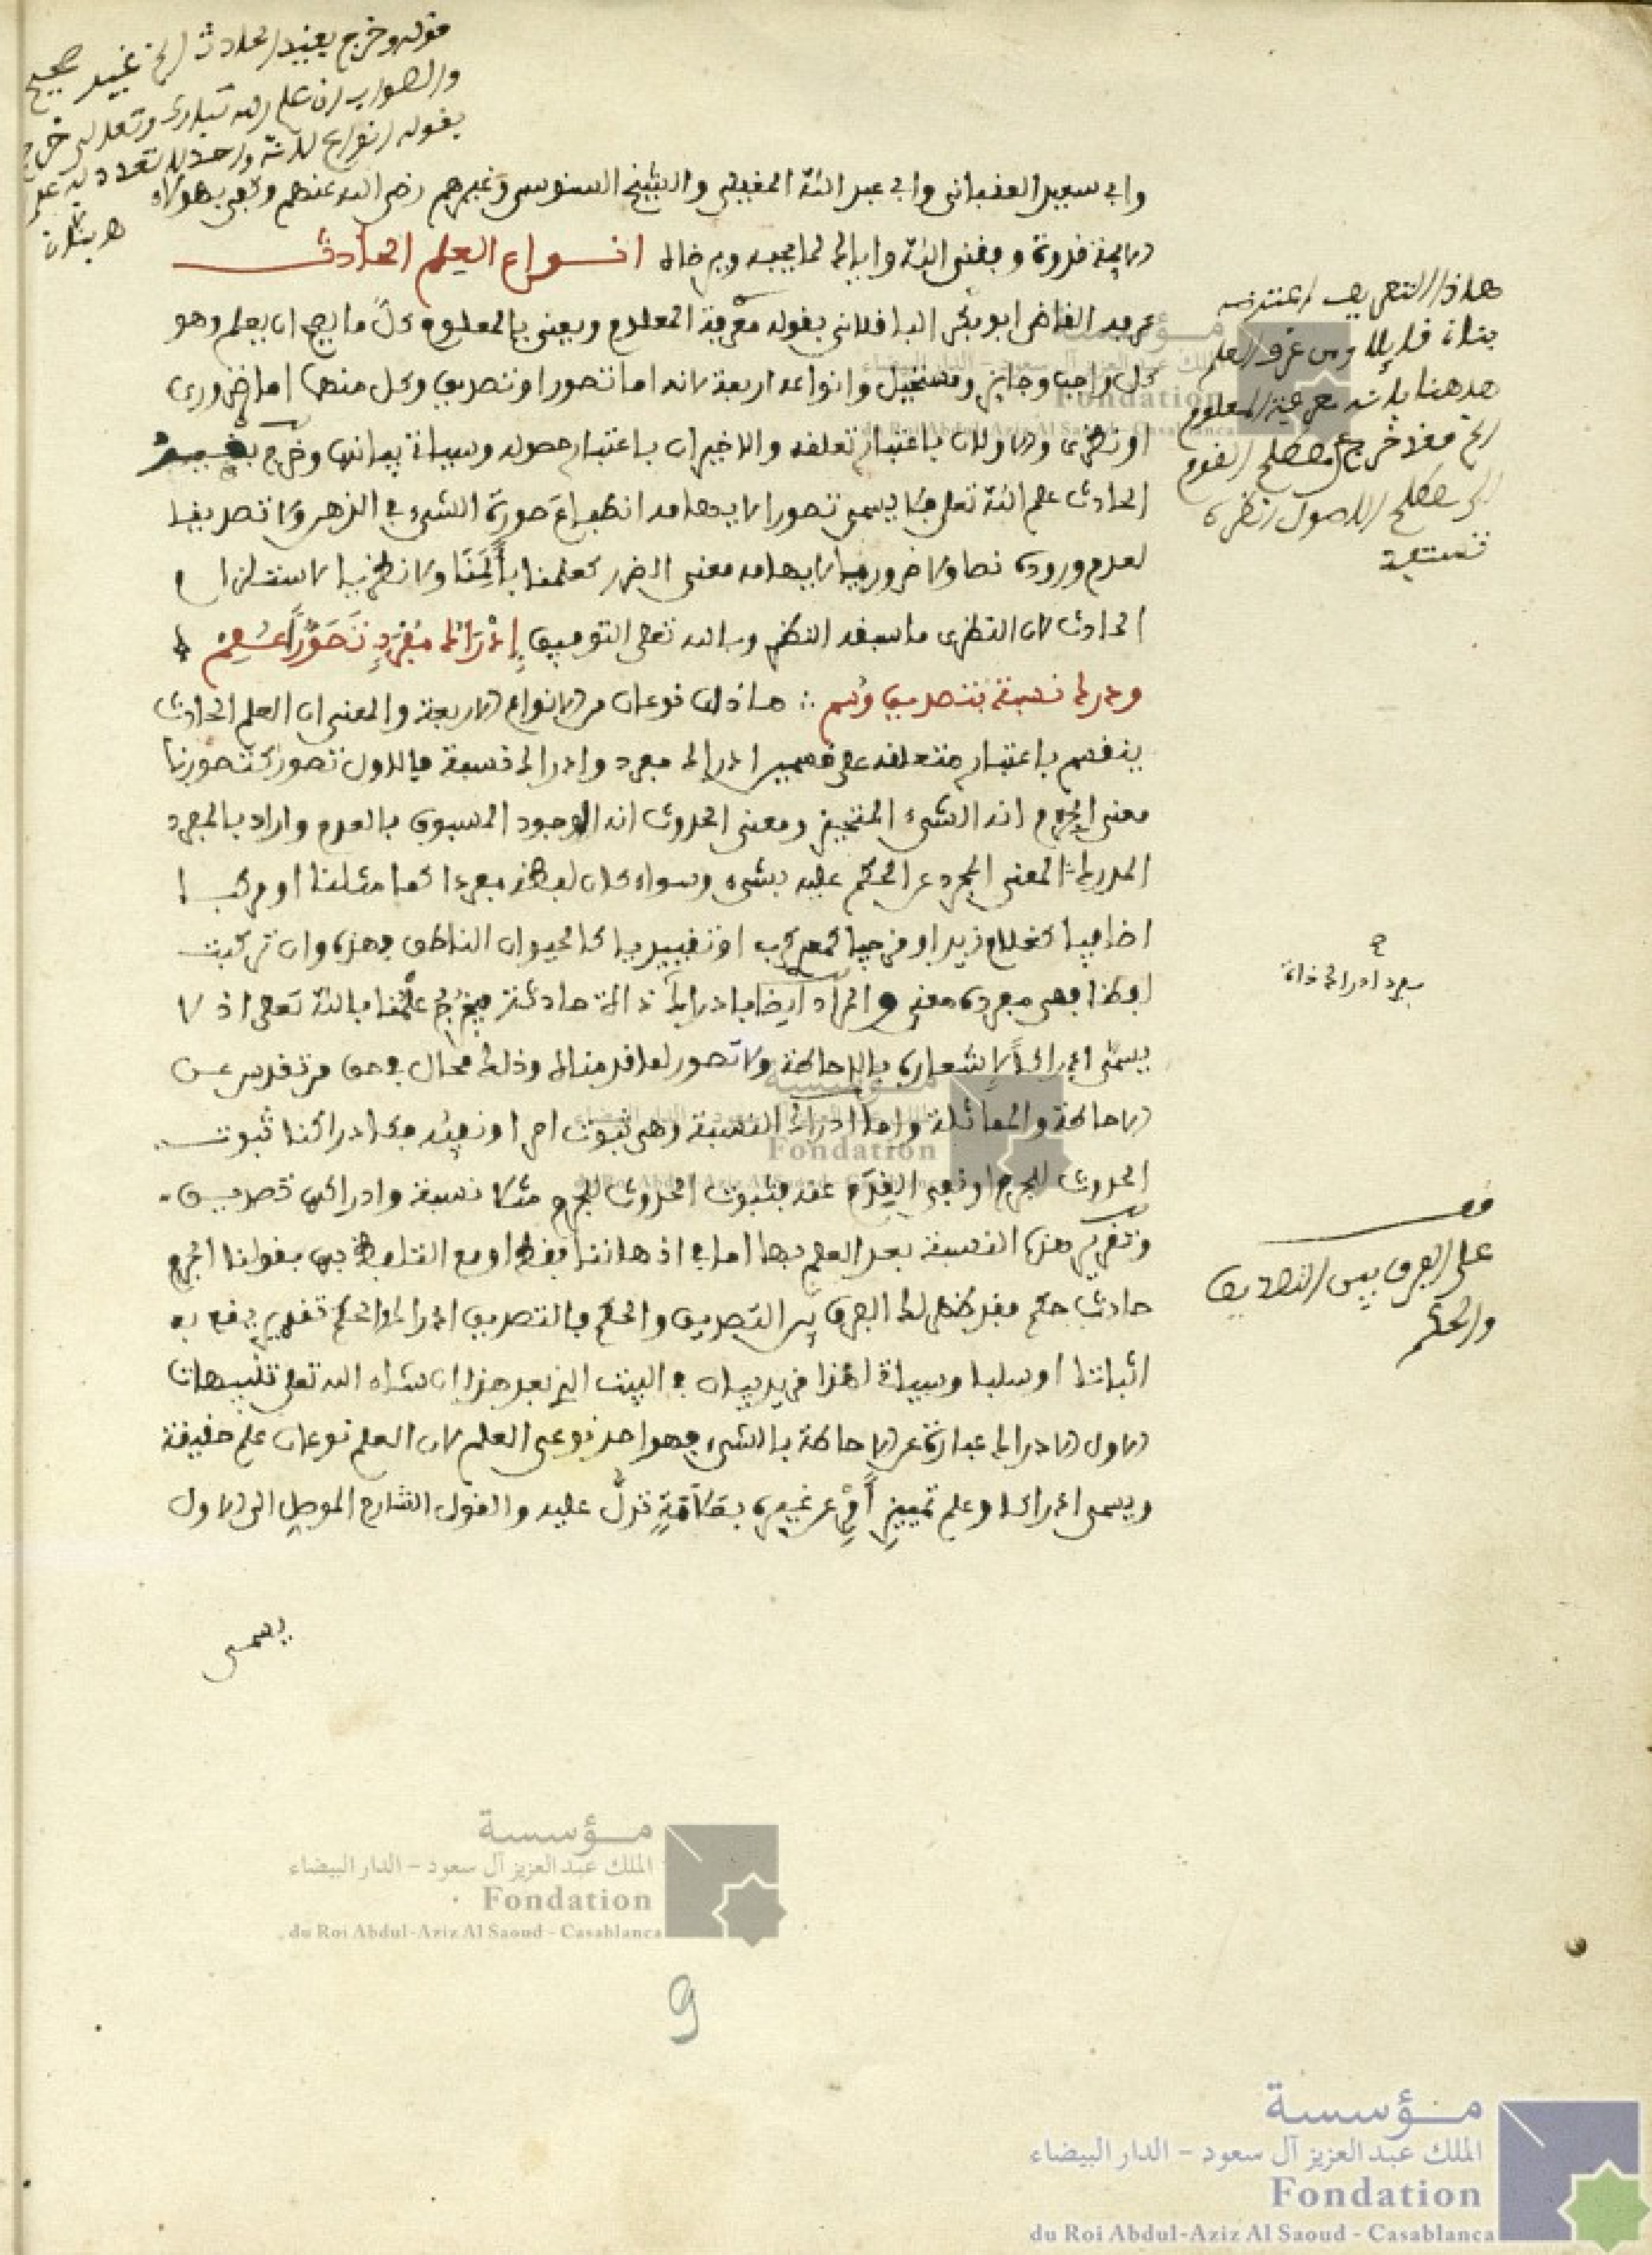 قوله وخرج بقيد الحادث الخ غير صحيح
والصواب ان علم الله تبارك وتعالى خرج
بقوله انواع لانه واحد لا تعدد فيه
وابي سعيد العقباني وابي عبد الله المقري والشيخ السنوسي وغيرهم رضي الله عنهم وكفى بهؤلاء
الايمة قدوة وفقني الله واياك لما يحبه ويرضاه انواع العلم الحادث
عرفه القاضي ابو بكر الباقلاني بقوله معرفة المعلوم ويعني بالمعلوم كل ما يصح ان يعلم وهو
كل واجب وجايز ومستحيل وانواعه اربعة لانه اما تصور او تصديق وكل منهما اما ضروري
او نظري والاولان باعتبار تعلقه والاخيران باعتبار حصوله وسياتي بيانهن وخرج بقيد
الحادث علم الله تعلى فلا يسمى تصورا لايهامه انطباع صورة الشيء في الذهن ولا تصديقا
لعدم وروده نصا ولا ضروريا لايهامه معنى الضرر كعلمنا بألمنا ولا نظريا لاستلزامه
الحادث لان النظري ما سبقه النظر وبالله تعلى التوفيق إدراك مفرد تصورا علم
ودرك نسبة بتصديق وسم ∴ هاذان نوعان من الانواع الاربعة والمعنى ان العلم الحادث
ينقسم باعتبار متعلقه على قسمين ادراك مفرد وادراك نسبة فالاول تصور كتصورنا
معنى الجرم انه الشيء المتحيز ومعنى الحدوث انه الوجود المسبوق بالعدم واراد بالمفرد
المدرك المعنى المجرد عن الحكم عليه بشيء وسواء كان لفظه مفردا كما مثلنا او مركبا
اضافيا كغلام زيد او مزجيا كمعدي كرب او تقييديا كالحيوان الناطق فهذه وان تركبت
لفظا فهي مفردة معنى والمراد ايضا بادراك ذات حادثة فيخرج علمنا بالله تعلى اذ لا
يسمى ادراكا لاشعاره بالاحاطة ولا تصور لما قدمناه وذلك محال في حق من تقدس عن
الاحاطة والمماثلة واما ادراك النسبة وهي ثبوت امر او نفيه فكادراكنا ثبوت
الحدوث للجرم او نفي القدم عنه فثبوت الحدوث للجرم مثلا نسبة وادراكها تصديق
وتقرير هذه النسبة بعد العلم بها اما في اذهاننا فقط او مع التلفظ بها بقولنا الجرم
حادث حكم فقد ظهر لك الفرق بين التصديق والحكم فالتصديق ادراك والحكم تقدير يقع به
اثباتا او سلبا وسياتي لهذا مزيد بيان في البيت الذي بعد هذا ان شاء الله تعلى تنبيهات
الاول الادراك عبارة عن الاحاطة بالشيء فهو احد نوعي العلم لان العلم نوعان علم حقيقة
ويسمى ادراكا وعلم تمييز أي عن غيره بعلامة تدل عليه والقول الشارح الموصل الى الاول
يسمى
هاذا التعريف اعترضه
بناني قايلا ومن عرف العلم
هاهنا بانه معرفة المعلوم
الخ فقد خرج عن مصطلح القوم
الى مصطلح الاصول انظره
تستفد
مفرد ادراك ذات
قف
على الفرق بين التصديق
والحكم
مؤسسة
الملك عبد العزيز آل سعود - الدار البيضاء
Fondation
du Roi Abdul-Aziz Al Saoud - Casablanca
9
مؤسسة
الملك عبد العزيز آل سعود - الدار البيضاء
Fondation
du Roi Abdul-Aziz Al Saoud - Casablanca